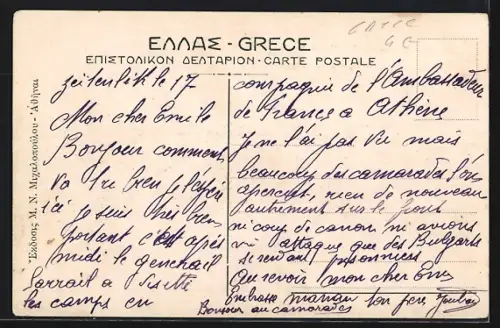 ΕΛΛΑΣ - GRECE
ΕΠΙΣΤΟΛΙΚΟΝ ΔΕΛΤΑΡΙΟΝ - CARTE POSTALE
Ἔκδοσις Μ. Ν. Μιχαλοπούλου - Ἀθῆναι
Zeitenlik le 17
Mon cher Emile
Bonjour comment
va tres bien j'espère
ici je suis très bien
portant c'est après
midi le general
Sarrail a visette
les camps en
compagnie de l'Ambassadeur
de France a
Athène
Je ne l'ai pas vu mais
beaucoup des camarades l'ons
apercent, rien de nouveau
autrement sur le front
ni coup de canon ni avions
ni attaque que des Bulgares
se rendent prisonniers
Au revoir mon cher Emi
Embrasse maman ton fere
Bonjour au camarades